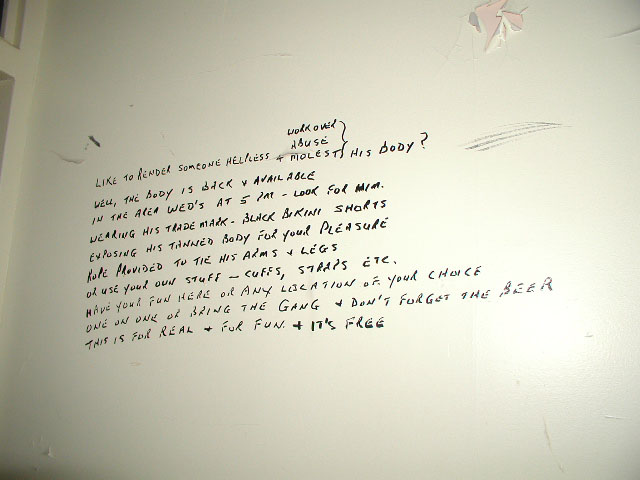 WORKOVER
ABUSE
LIKE TO RENDER SOMEONE HELPLESS + MOLEST} HIS BODY?
WELL, THE BODY IS BACK + AVAILABLE
IN THE AREA WED'S AT 5 PM - LOOK FOR HIM.
WEARING HIS TRADEMARK - BLACK BIKINI SHORTS
EXPOSING HIS TANNED BODY FOR YOUR PLEASURE
ROPE PROVIDED TO TIE HIS ARMS + LEGS
OR USE YOUR OWN STUFF - CUFFS, STRAPS ETC.
HAVE YOUR FUN HERE OR ANY LOCATION OF YOUR CHOICE
ONE ON ONE OR BRING THE GANG + DON'T FORGET THE BEER
THIS IS FOR REAL + FOR FUN + IT'S FREE